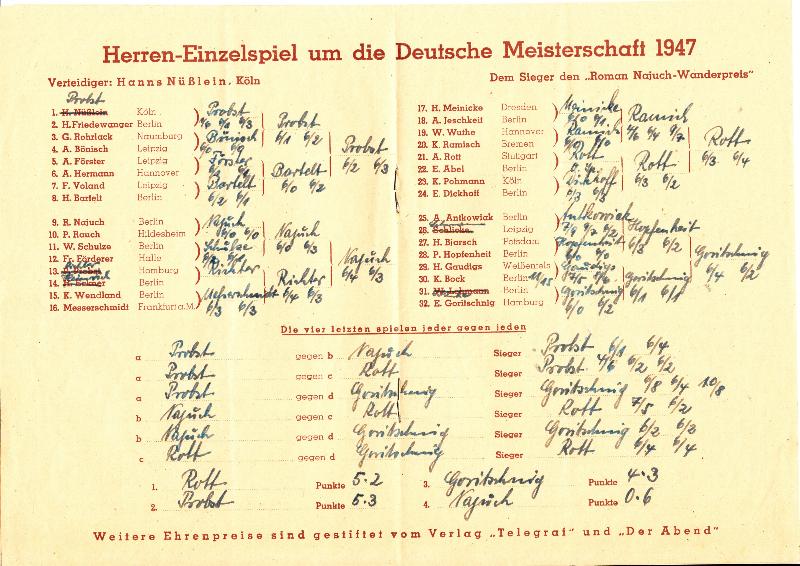 Herren-Einzelspiel um die Deutsche Meisterschaft 1947
Verteidiger: Hanns Nüßlein, Köln
Dem Sieger den „Roman Najuch-Wanderpreis"
Probst
1. H. Nüßlein Köln
2. H. Friedewanger Berlin
3. G. Rohrlack Naumburg
4. A. Bönisch Leipzig
5. A. Förster Leipzig
6. A. Hermann Hannover
7. F. Voland Leipzig
8. H. Bartelt Berlin
Probst
Bönisch
Förster
Bartelt
6/2 6/1
Probst
6/1 6/2
Bartelt
6/0 6/2
Probst
6/2 6/3
9. R. Najuch Berlin
10. P. Rauch Hildesheim
11. W. Schulze Berlin
12. Fr. Förderer Halle
13. Homburg
14. H. Eckner Berlin
15. K. Wendland Berlin
16. Messerschmidt Frankfurt a.M.
Najuch
6/0 6/0
Schulze
Richter
Messerschmidt
6/3 6/3
Najuch
6/0 6/3
Richter
6/4 6/3
Najuch
6/4 6/3
17. H. Meinicke Dresden
18. A. Jeschkeit Berlin
19. W. Wathe Hannover
20. K. Ramisch Bremen
21. A. Rott Stuttgart
22. E. Abel Berlin
23. K. Pohmann Köln
24. E. Dickhoff Berlin
Meinicke
6/0 6/1
Ramisch
6/0 6/0
Rott
Dickhoff
6/3 6/3
Ramisch
4/6 6/4 9/7
Rott
6/3 6/2
Rott
6/3 6/4
25. A. Antkowiak Berlin
26. Schlicke Leipzig
27. H. Bjarsch Potsdau
28. P. Hopfenheit Berlin
29. H. Gaudigs Weißenfels
30. K. Bock Berlin
31. Berlin
32. E. Goritschnig Hamburg
Antkowiak
7/9 9/7 6/2
Hopfenheit
6/0 6/0
Gaudigs
7/5 9/6
Goritschnig
6/0 6/2
Hopfenheit
6/3 6/2
Goritschnig
6/1 6/1
Goritschnig
6/4 6/2
Die vier letzten spielen jeder gegen jeden
a Probst gegen b Najuch Sieger Probst 6/1 6/4
a Probst gegen c Rott Sieger Probst 4/6 6/2 6/2
a Probst gegen d Goritschnig Sieger Goritschnig 6/8 6/4 10/8
b Najuch gegen c Rott Sieger Rott 7/5 6/2
b Najuch gegen d Goritschnig Sieger Goritschnig 6/2 6/2
c Rott gegen d Goritschnig Sieger Rott 6/4 6/4
1. Rott Punkte 5.2 3. Goritschnig Punkte 4.3
2. Probst Punkte 5.3 4. Najuch Punkte 0.6
Weitere Ehrenpreise sind gestiftet vom Verlag „Telegraf" und „Der Abend"